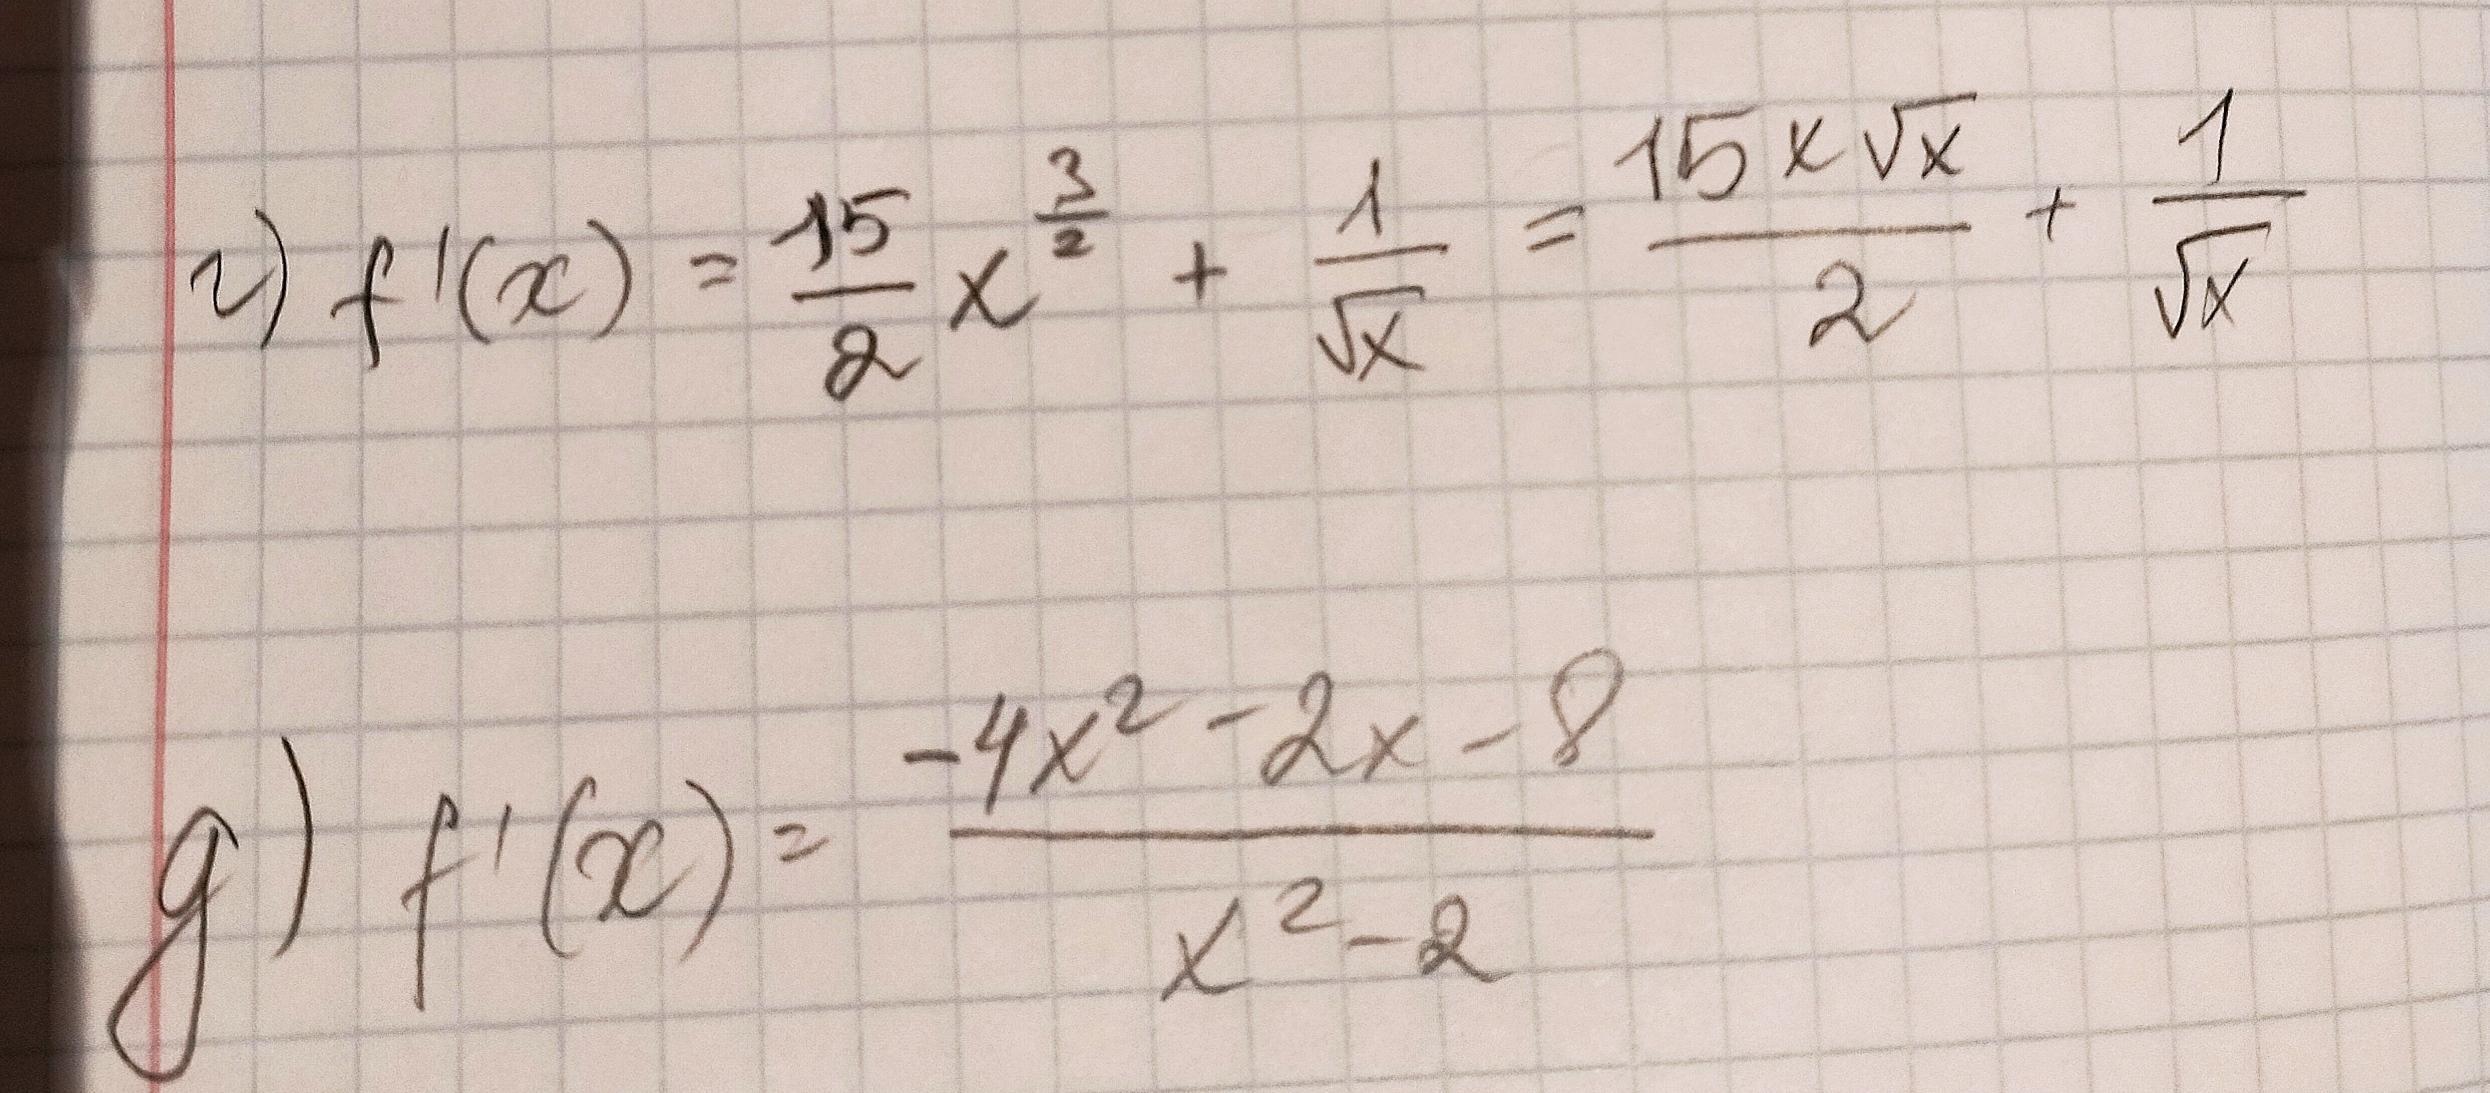 г) f'(x) = 15/2 x^(3/2) + 1/√x = 15x√x/2 + 1/√x
g) f'(x) = (-4x² - 2x - 8)/(x² - 2)